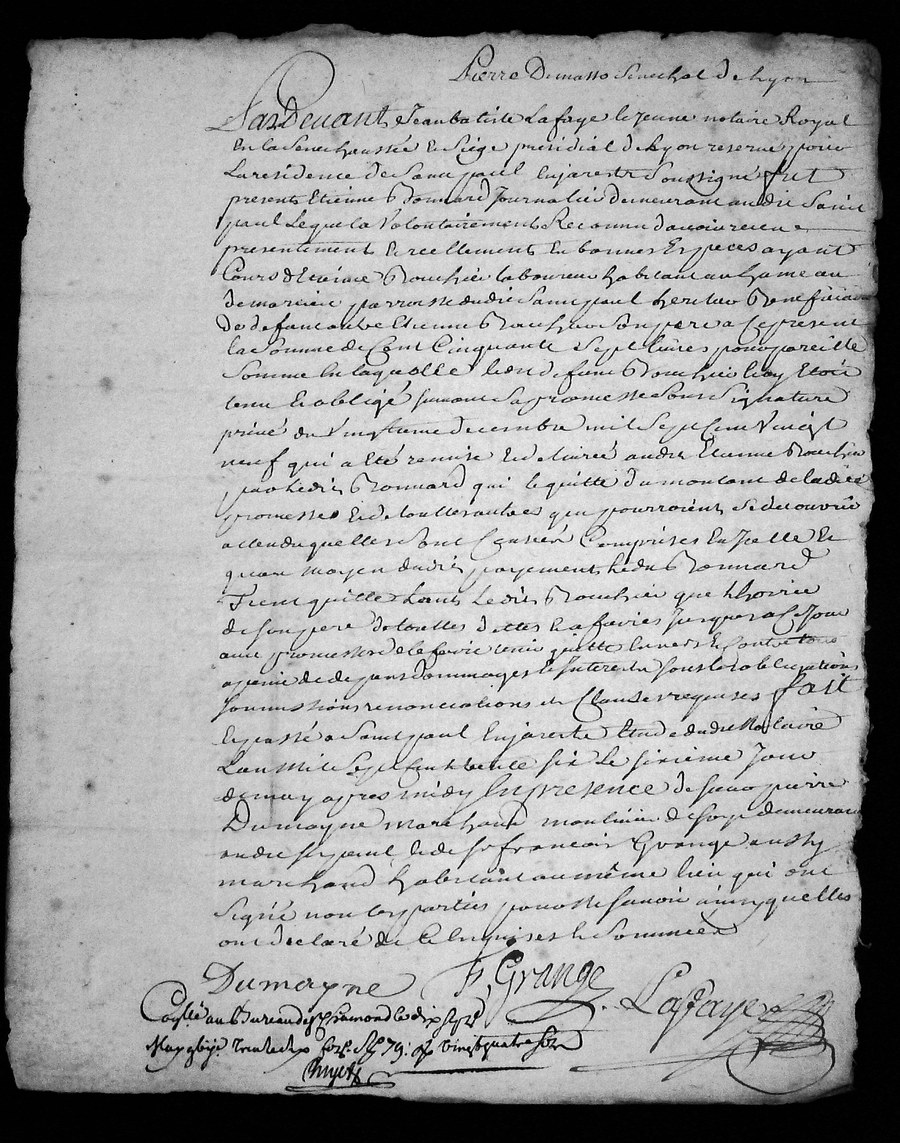 Pierre Dumasso Senechal de Lyon
Pardevant Jean batiste Lafaye le Jeune notaire Royal
En la Senechaussée et Siége présidial de Lyon reservé pour
La residence de Saint paul Enjarest Soussigné fut
present Etienne Bonnard Journalier demeurant audit Saint
paul Lequel a Volontairement Reconnu d'avoir receu
presentement et reellement En bonnes Especes ayant
Cours d'Etienne laboureur habitant au hameau
de parroisse dudit Saint paul heritier Beneficiaire
de defunt autre Etienne Son pere a Ce present
la Somme de Cent Cinquante Sept livres pour pareille
Somme En laquelle ledit defunt Etoit
tenu Et obligé suivant Sa promesse Sous Signature
privé du Vingtieme decembre mil Sept Cent Vingt
neuf qui a Eté remise Et delivrée audit Etienne
par ledit Bonnard qui le quitte du montant de ladite
promesse Et de touttes autres qui pourroient Se decouvrir
attendu quelles Sont Censées Comprises En Icelle Et
quau moyen dudit payement ledit Bonnard
Tient quitte tant ledit que lhoirie
de Son pere de touttes dettes Et affaires Jusques a Ce Jour
avec promesse de le faire tenir quitte Envers Et Contre tous
a peine de depans dommages Et Interets Sous les obligations
Soumissions renonciations et Clauses requises fait
Et passé a Saint paul Enjarest Etude dudit Notaire
Lan Mil Sept Cent trente Six Le Sixieme Jour
de may apres midy En presence de pierre
Dumayne marchand moulinier de Soye demeurant
audit St paul Et de Sr francois Grange aussy
marchand habitant au même lieu qui ont
Signé non les parties pour ne Savoir ainsy quelles
ont declaré de Ce Enquises Et Sommées
Dumayne F. Grange Lafaye
Controllé au Bureau de St Chamond le dix Sept
May trente Six fol. 79. Vingt quatre Sols